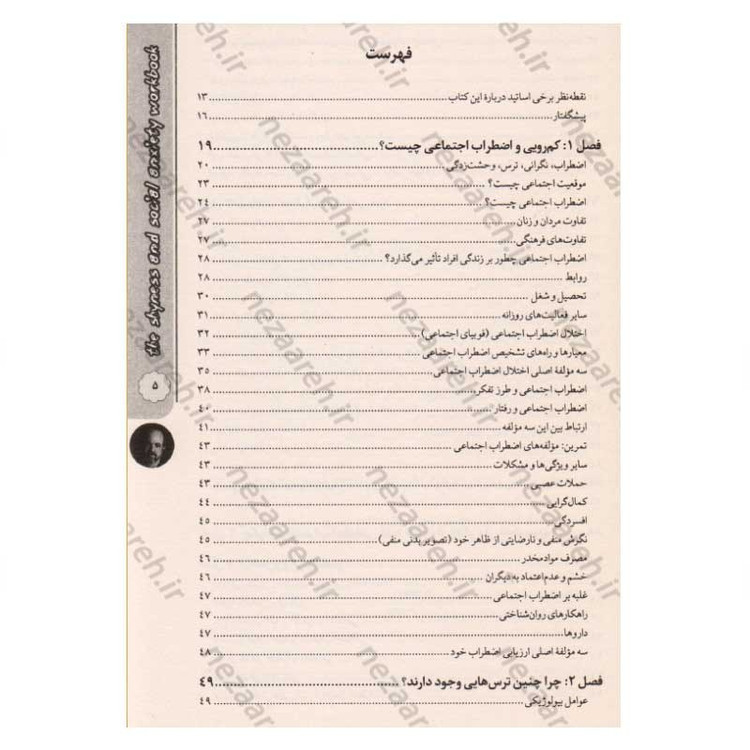 فهرست
نقطه‌نظر برخی اساتید دربارهٔ این کتاب ........ ۱۳
پیشگفتار ........ ۱۶
فصل ۱: کم‌رویی و اضطراب اجتماعی چیست؟ ........ ۱۹
اضطراب، نگرانی، ترس، وحشت‌زدگی ........ ۲۰
موقعیت اجتماعی چیست؟ ........ ۲۳
اضطراب اجتماعی چیست؟ ........ ۲۴
تفاوت مردان و زنان ........ ۲۷
تفاوت‌های فرهنگی ........ ۲۷
اضطراب اجتماعی چطور بر زندگی افراد تأثیر می‌گذارد؟ ........ ۲۸
روابط ........ ۲۸
تحصیل و شغل ........ ۳۰
سایر فعالیت‌های روزانه ........ ۳۱
اختلال اضطراب اجتماعی (فوبیای اجتماعی) ........ ۳۲
معیارها و راه‌های تشخیص اضطراب اجتماعی ........ ۳۳
سه مؤلفهٔ اصلی اختلال اضطراب اجتماعی ........ ۳۵
اضطراب اجتماعی و طرز تفکر ........ ۳۸
اضطراب اجتماعی و رفتار ........ ۴۰
ارتباط بین این سه مؤلفه ........ ۴۱
تمرین: مؤلفه‌های اضطراب اجتماعی ........ ۴۳
سایر ویژگی‌ها و مشکلات ........ ۴۳
حملات عصبی ........ ۴۳
کمال‌گرایی ........ ۴۴
افسردگی ........ ۴۵
نگرش منفی و نارضایتی از ظاهر خود (تصویر بدنی منفی) ........ ۴۵
مصرف موادمخدر ........ ۴۶
خشم و عدم‌اعتماد به دیگران ........ ۴۶
غلبه بر اضطراب اجتماعی ........ ۴۷
راهکارهای روان‌شناختی ........ ۴۷
داروها ........ ۴۷
سه مؤلفهٔ اصلی ارزیابی اضطراب خود ........ ۴۸
فصل ۲: چرا چنین ترس‌هایی وجود دارند؟ ........ ۴۹
عوامل بیولوژیکی ........ ۴۹
the shyness and social anxiety workbook
۵
nezaareh.ir